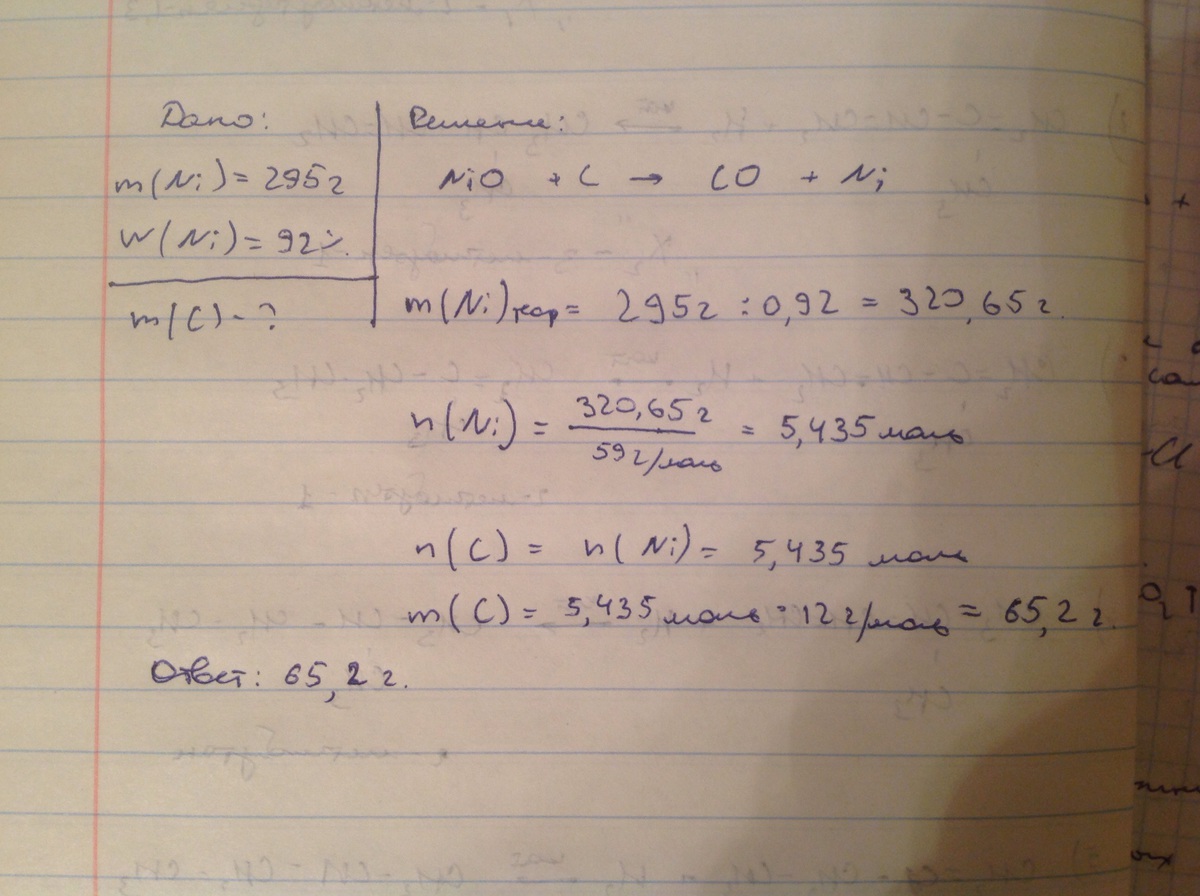 Дано:
m(Ni) = 295г
W(Ni) = 92%.
m(C) - ?
Решение:
NiO + C → CO + Ni
m(Ni)теор = 295г : 0,92 = 320,65г.
n(Ni) = 320,65г / 59г/моль = 5,435 моль
n(C) = n(Ni) = 5,435 моль
m(C) = 5,435 моль · 12 г/моль = 65,2 г.
Ответ: 65,2 г.